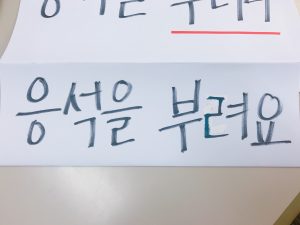 응석을 부려요